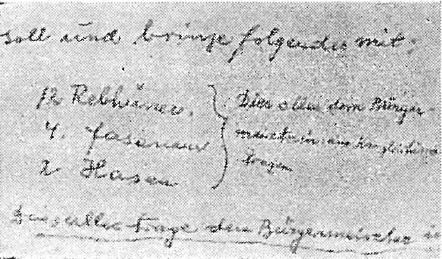 soll und bringe folgendes mit;
12 Rebhüner.
4. Fasanen
2 Hasen
Dies alles dem Bürger-
tragen
trage dem Bürgermeister